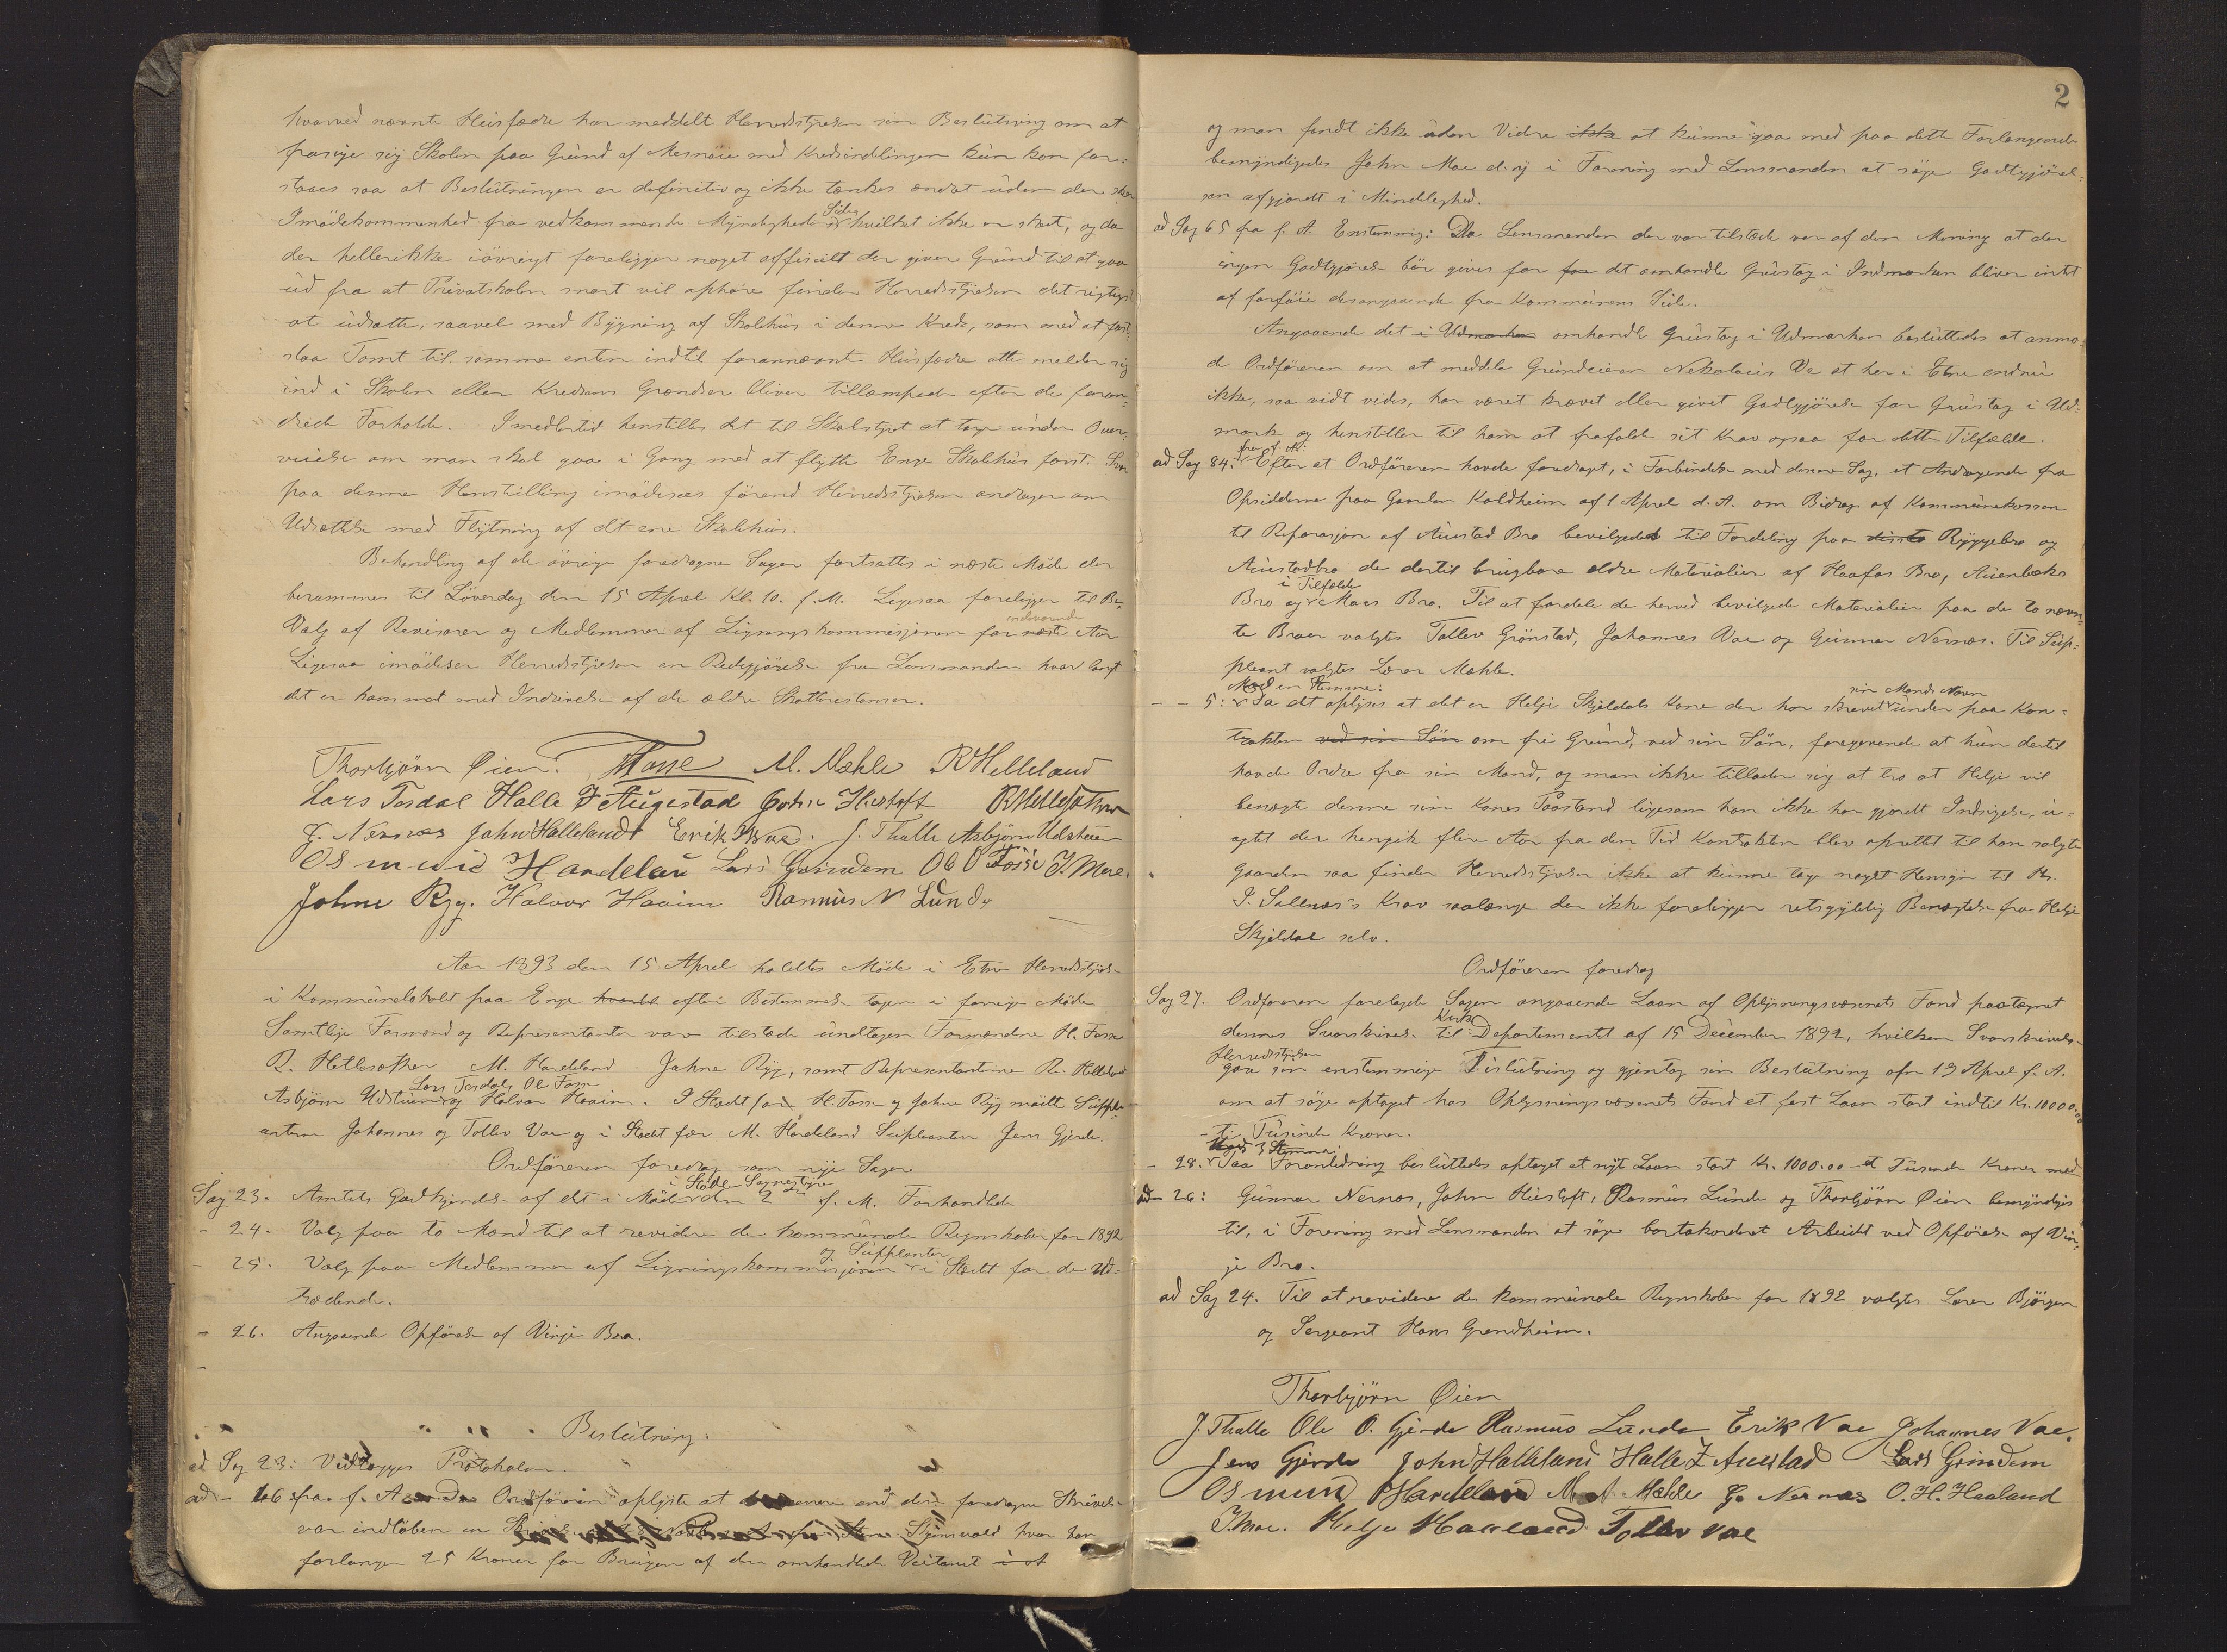 hvorved nævnte Husfædre har meddelt Herredsstyrelsen sin Beslutning om at
frasige sig Skolen paa Grund af Misnøie med Kredsinddelingen kun kan for-
staaes saa at Beslutningen er definitiv og ikke tænkes ændret uden der sker
Imødekommenhed fra vedkommende Myndigheders Side hvilket ikke er skeet, og da
der hellerikke iøvrigt foreligger noget officielt der giver Grund til at gaa
ud fra at Privatskolen snart vil ophøre finder Herredsstyrelsen det rigtigst
at udsætte, saavel med Bygning af Skolehus i denne Kreds, som med at fast-
slaa Tomt til samme enten indtil forannævnte Husfædre atter melder sig
ind i Skolen eller Kredsens Grændser bliver tillæmpede efter de foran-
drede Forholde. Imedlertid henstilles det til Skolestyret at tage under Over-
veielse om man skal gaa i Gang med at flytte Enge Skolehus først. Svar
paa denne Henstilling imødesees førend Herredsstyrelsen andrager om
Udsættelse med Flytning af det ene Skolehus.
Behandling af de øvrige foredragne Sager fortsættes i næste Møde der
berammes til Løverdag den 15 April Kl. 10. f. M. Ligesaa foreligger til Be-
Valg af Revisorer og Medlemmer af Ligningskommisjonen for næste indeværende Aar
Ligesaa imødeser Herredsstyrelsen en Redegjørelse fra Lensmanden hvor langt
det er kommet med Inddrivelse af de ældre Skatterestanser.
Thorbjörn Øien. HFosse M. Mæhle R Helleland
Lars Tesdal Halle I Augestad John Hustoft R Hettesæther
G. Nernæs John Hallelandt Erik Vae. J. Thalle Asbjørn Udstuen
Osmund Handeland Lars Grindem Ob O Fosse J. Moe.
Johne Ryg. Halvor Haaim Rasmus N Lunde
Aar 1893 den 15 April holdtes Møde i Etne Herredsstyrelse
i Kommunelokalet paa Enge hvortil efter Bestemmelse tagen i forrige Møde
Samtlige Formænd og Repræsentanter var tilstede undtagen Formændene H. Fosse
R. Hettesæther M. Handeland Johne Ryg, samt Repræsentanterne R. Helleland
Asbjørn Udstuen Lars Tesdal, Ole Fosse og Halvor Haaim. I Stedet for H. Fosse og Johne Ryg mødte Supple-
anterne Johannes og Tollev Vae og i Stedet for M. Handeland Supleanten Jens Gjerde.
Ordføreren foredrog som nye Sager
Sag 23. Amtets Godkjendelse af det i Møde i Støle Sognestyre den 2den f. M. Forhandlede
- 24. Valg paa to Mænd til at revidere de kommunale Regnskaber for 1892
- 25. Valg paa Medlemmer af Ligningskommisjonen og Supleanter i Stedet for de Ud-
trædende.
- 26. Angaaende Opførelse af Vinje Bro.
-
Beslutning.
ad Sag 23: Vedlægges Protokolen.
ad - 166 fra f. A. Da Ordføreren oplyste at senere end den foredragne Skrivelse
var indløben en hvor han
forlanger 25 Kroner for Brugen af den omhandlede Veitomt i at
2
og man fandt ikke uden Videre ikke at kunne gaa med paa dette Forlangende
bemyndigedes John Moe d. y. i Forening med Lensmanden at søge Godtgjørel-
sen afgjordt i Mindelighed.
ad Sag 65 fra f. A. Enstemmig: Da Lensmanden der var tilstede var af den Mening at der
ingen Godtgjørelse bør gives for for det omhandlede Grustag i Indmarken bliver intet
at forføie desangaaende fra Kommunens Side.
Angaaende det i Udmarken omhandlede Grustag i Udmarken besluttedes at anmo-
de Ordføreren om at meddele Grundeieren Nekolaus Ve at her i Etne endnu
ikke, saa vidt vides, har været krævet eller givet Godtgjørelse for Grustag i Ud-
mark og henstiller til ham at frafalde sit Krav ogsaa for dette Tilfælde.
ad Sag 84. fra f. A: Efter at Ordføreren havde foredraget, i Forbindelse med denne Sag, et Andragende fra
Opsidderne paa Gaarden Kaldheim af 1 April d. A. om Bidrag af Kommunekassen
til Reparasjon af Austad Bro bevilgedes til Fordeling paa disse to Ryggebro og
Austadbro de dertil brugbare ældre Materialier af Haafos Bro, Auenbæks
Bro og i Tilfælde Moes Bro. Til at fordele de herved bevilgede Materialier paa de to nævn-
te Broer valgtes Tollev Grönstad, Johannes Vae og Gunnar Nernæs. Til Sup-
pleant valgtes Lærer Mæhle.
- - 5: Mod en Stemme: Da det oplyses at det er Helje Skjeldals Kone der har skrevet sin Mands Navn under paa Kon-
trakten ved sin Søn om fri Grund, ved sin Søn, foregivende at hun dertil
havde Ordre fra sin Mand, og man ikke tillader sig at tro at Helje vil
benægte denne sin Kones Paastand ligesom han ikke har gjordt Indsigelse, u-
agtet der hengik flere Aar fra den Tid Kontrakten blev oprettet til han solgte
Gaarden saa finder Herredsstyrelsen ikke at kunne tage noget Hensyn til Hr.
J. Sellnæs's Krav saalænge der ikke foreligger retsgyldig Benægtelse fra Helje
Skjeldal selv.
Ordføreren foredrog
Sag 27. Ordføreren forelagde Sagen angaaende Laan af Oplysningsvæsenets Fond paategnet
dennes Svarskrivelse til Kirke Departementet af 15 December 1892, hvilken Svarskrivelse
Herredsstyrelsen gav sin enstemmige Tilslutning og gjentog sin Beslutning afn 19 April f. A.
om at søge optaget hos Oplysningsvæsenets Fond et fast Laan stort indtil Kr. 10000.00
- ti Tusinde Kroner.
- 28. Mod 3 Stemmer Paa Foranledning besluttedes optaget et nyt Laan stort Kr. 1000.00 et Tusende Kroner med
ad - 26: Gunnar Nernæs, John Hustoft, Rasmus Lunde og Thorbjørn Øien bemyndiges
til, i Forening med Lensmanden at søge bortakorderet Arbeidet ved Opførelse af Vin-
je Bro.
ad Sag 24. Til at revidere de kommunale Regnskaber for 1892 valgtes Lærer Bjørgen
og Sergeant Hans Grandheim.
Thorbjörn Øien
J. Thalle Ole O. Gjerde Rasmus Lunde Erik Vae Johannes Vae.
Jens Gjerde John Halleland Halle I Austad Lars Grindem
Osmund Handeland M. A. Mæhle G. Nernæs O. H. Haaland
J. Moe. Helje Haaland Tollev Vae